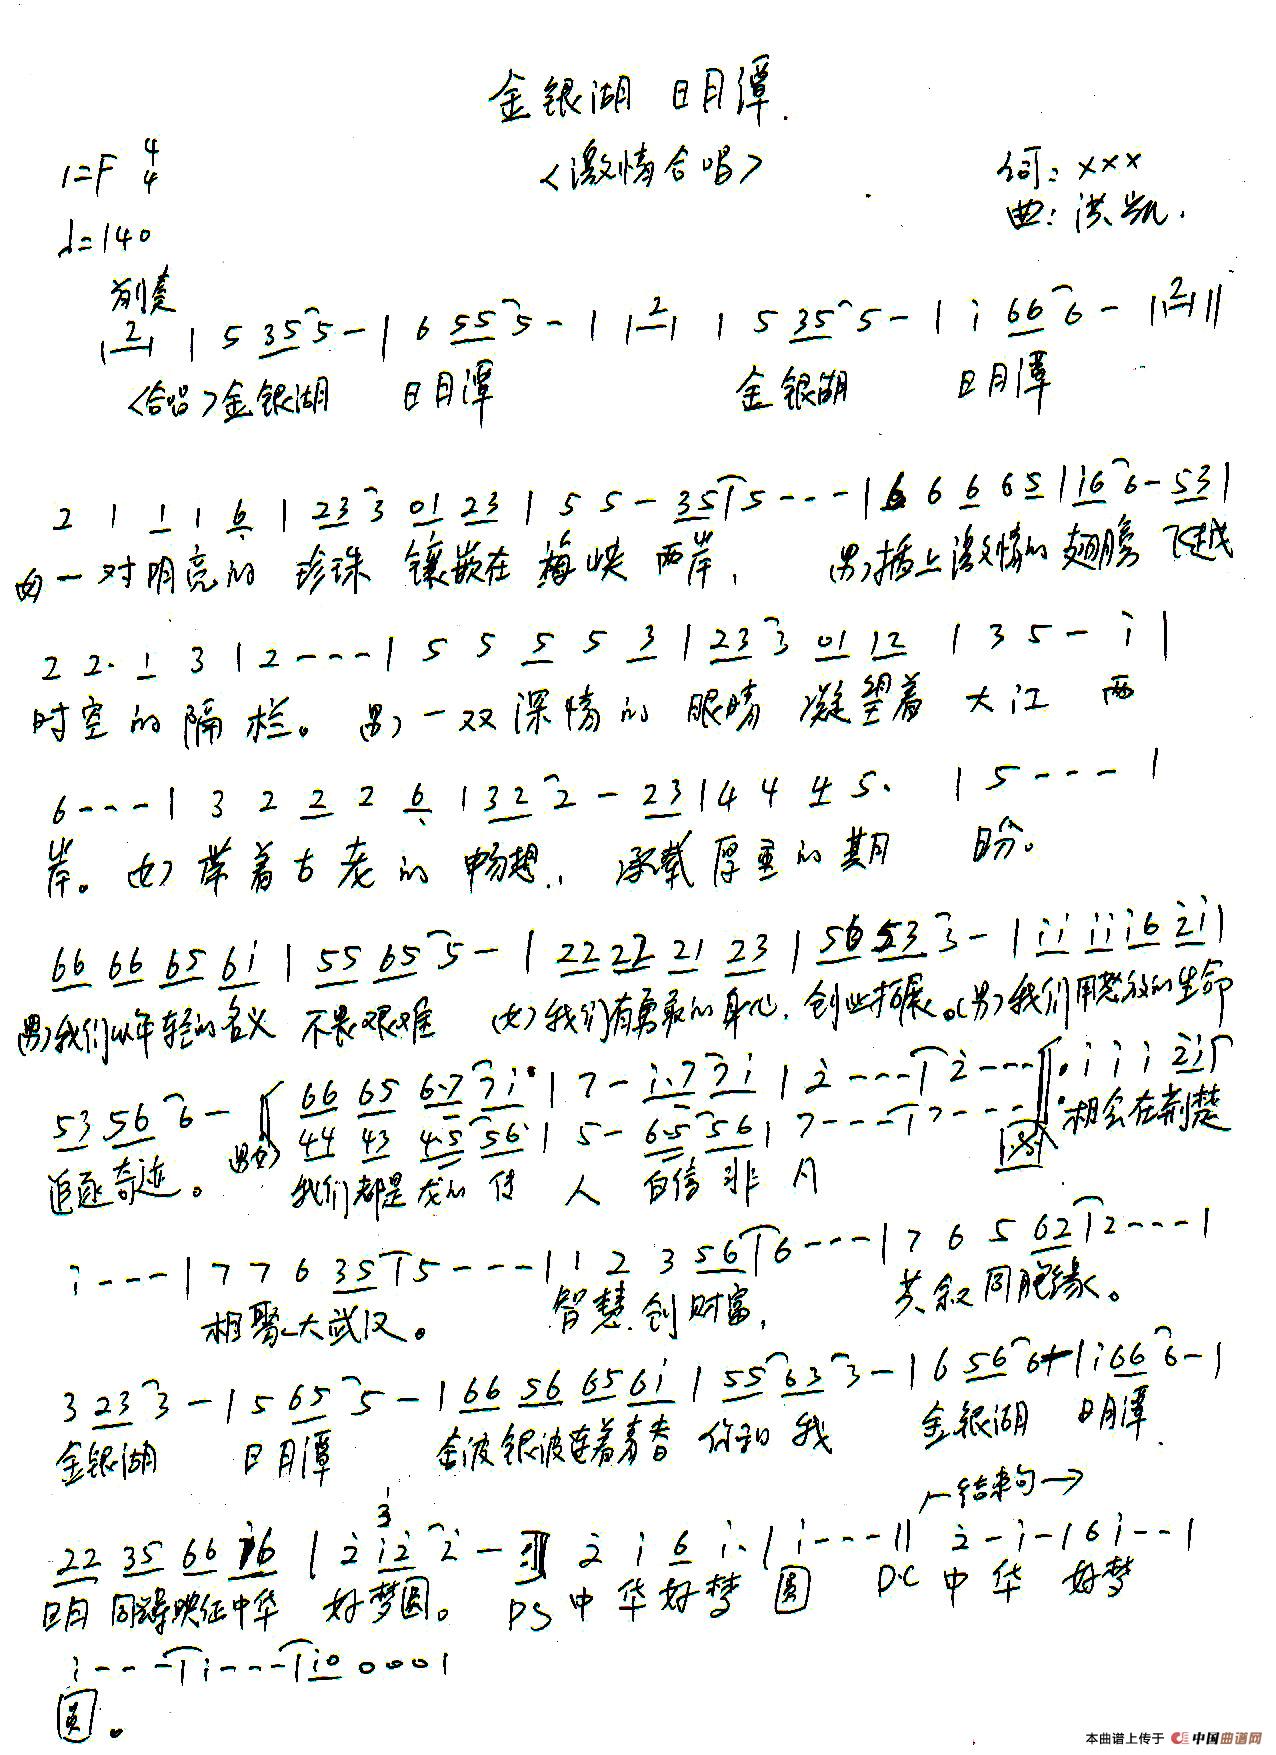 金银湖 日月潭
<激情合唱>
1=F 4/4
词: xxx
♩=140
曲: 洪凯.
前奏
|2| | 5 35 5 - | 6 55 5 - | |2| | 5 35 5 - | i 66 6 - |2||
<合唱>金银湖 日月潭 金银湖 日月潭
2 1 1 1 6 | 23 3 01 23 | 5 5 - 35 | 5 - - - | 6 6 6 6 5 | i6 6 - 53 |
一对明亮的 珍珠 镶嵌在 海峡 两岸, 男)插上激情的翅膀 飞越
2 2. 1 3 | 2 - - - | 5 5 5 5 3 | 23 3 01 12 | 3 5 - i |
时空的隔栏。 男)一双深情的 眼睛 凝望着 大江 两
6 - - - | 3 2 2 2 6 | 32 2 - 23 | 4 4 4 5. | 5 - - - |
岸。 女)带着古老的 畅想, 承载厚重的期 盼。
66 66 65 6i | 55 65 5 - | 22 22 21 23 | 56 53 3 - | ii ii i6 2i |
男)我们以年轻的名义 不畏艰难 (女)我们有勇敢的身心, 创业拓展。(男)我们用怒放的生命
53 56 6 - 66 65 6.7 7i | 7 - i.7 7i | 2 - - - | 2 - - - i i i 2i
44 43 4.5 56 | 5 - 6.5 56 | 7 - - - | 7 - - -
追逐奇迹。 男女) 我们都是龙的传 人 自信 非 凡 相会在荆楚
i - - - | 7 7 6 35 | 5 - - - | 1 2 3 56 | 6 - - - | 7 6 5 62 | 2 - - - |
相聚大武汉。 智慧创财富, 共叙同胞缘。
3 23 3 - | 5 65 5 - | 66 56 65 6i | 55 63 3 - | 6 56 6 - | i 66 6 - |
金银湖 日月潭 金波银波连着青春 你和我 金银湖 日月潭
结束句→
22 35 66 i6 | 2 i2 2 - 2 i 6 i. | i - - - || 2 - i - | 6 i - - |
日月 同辉映征中华 好梦圆。 DS 中华好梦 圆 DC 中华 好梦
i - - - | i - - - | i0 0 0 0 |
圆。
本曲谱上传于 中国曲谱网